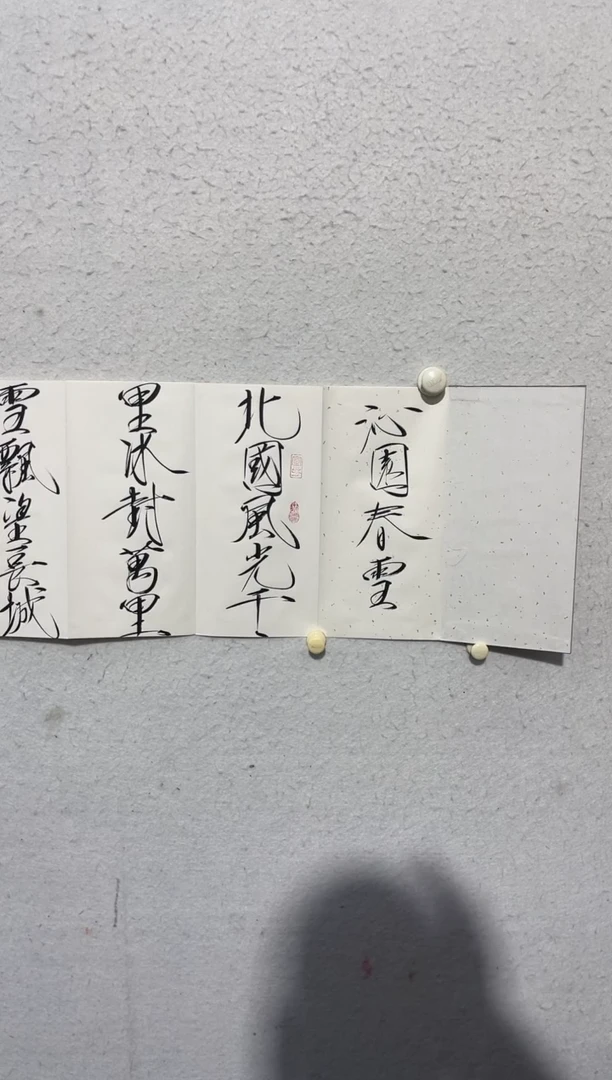 沁園春雪
北國風光千
里冰封萬里
雪飄望長城